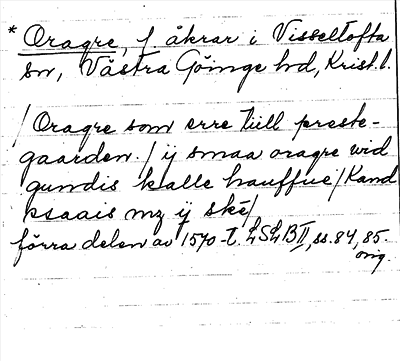 * Oragre, f. åkrar i Visseltofta
sn, Västra Göinge hd, Krist. l.
/ Oragre som erre till preste-
gaarden. / ij smaa oragre wid
gundis kalle hauffue / Kand
ksaais mz ij ské /
förra delen av 1570-t. LSLB II, ss. 84, 85.
orig.